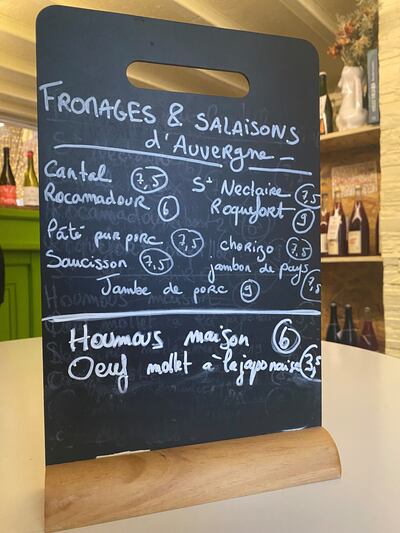 FROMAGES & SALAISONS
d'Auvergne
Cantal 7,5
St Nectaire 7,5
ROCAMADOUR 6
ROQUEFORT 9
Pâté pur porc 7,5
chorizo 7,5
Saucisson 7,5
jambon de pays 7,5
Jambe de porc 9
Houmous maison 6
Oeuf mollet à la japonaise 3,5